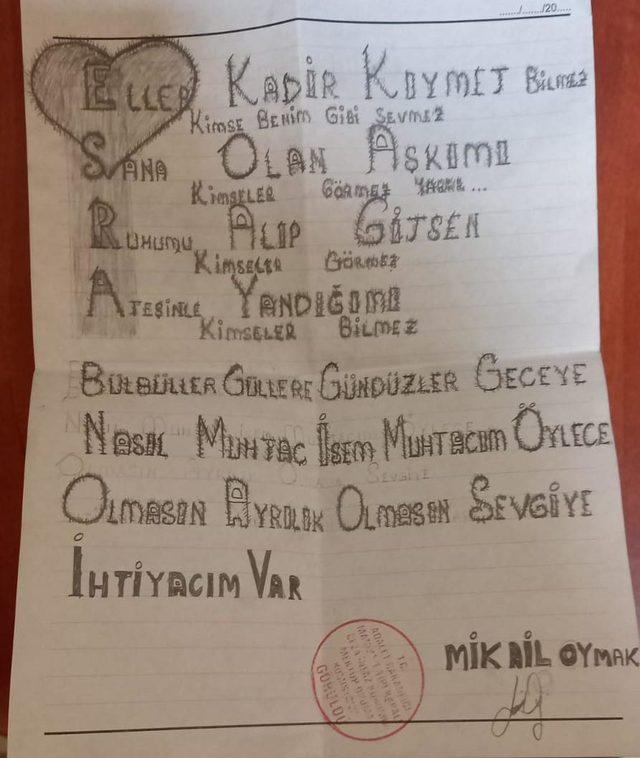 ....../....../20.....
ELLER KADİR KIYMET BİLMEZ
KİMSE BENİM GİBİ SEVMEZ
SANA OLAN AŞKIMI
KİMSELER GÖRMEZ ...
RUHUMU ALIP GİTSEN
KİMSELER GÖRMEZ
ATEŞİNLE YANDIĞIMI
KİMSELER BİLMEZ
BÜLBÜLLER GÜLLERE GÜNDÜZLER GECEYE
NASIL MUHTAÇ İSEM MUHTACIM ÖYLECE
OLMASIN AYRILIK OLMASIN SEVGİYE
İHTİYACIM VAR
MİKAİL OYMAK
T.C.
ADALET BAKANLIĞI
GÖRÜLDÜ